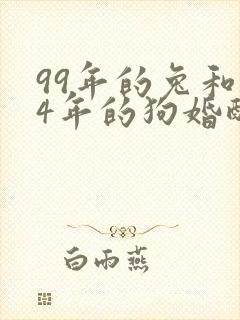 99年的兔和
4年的狗婚
白雨燕